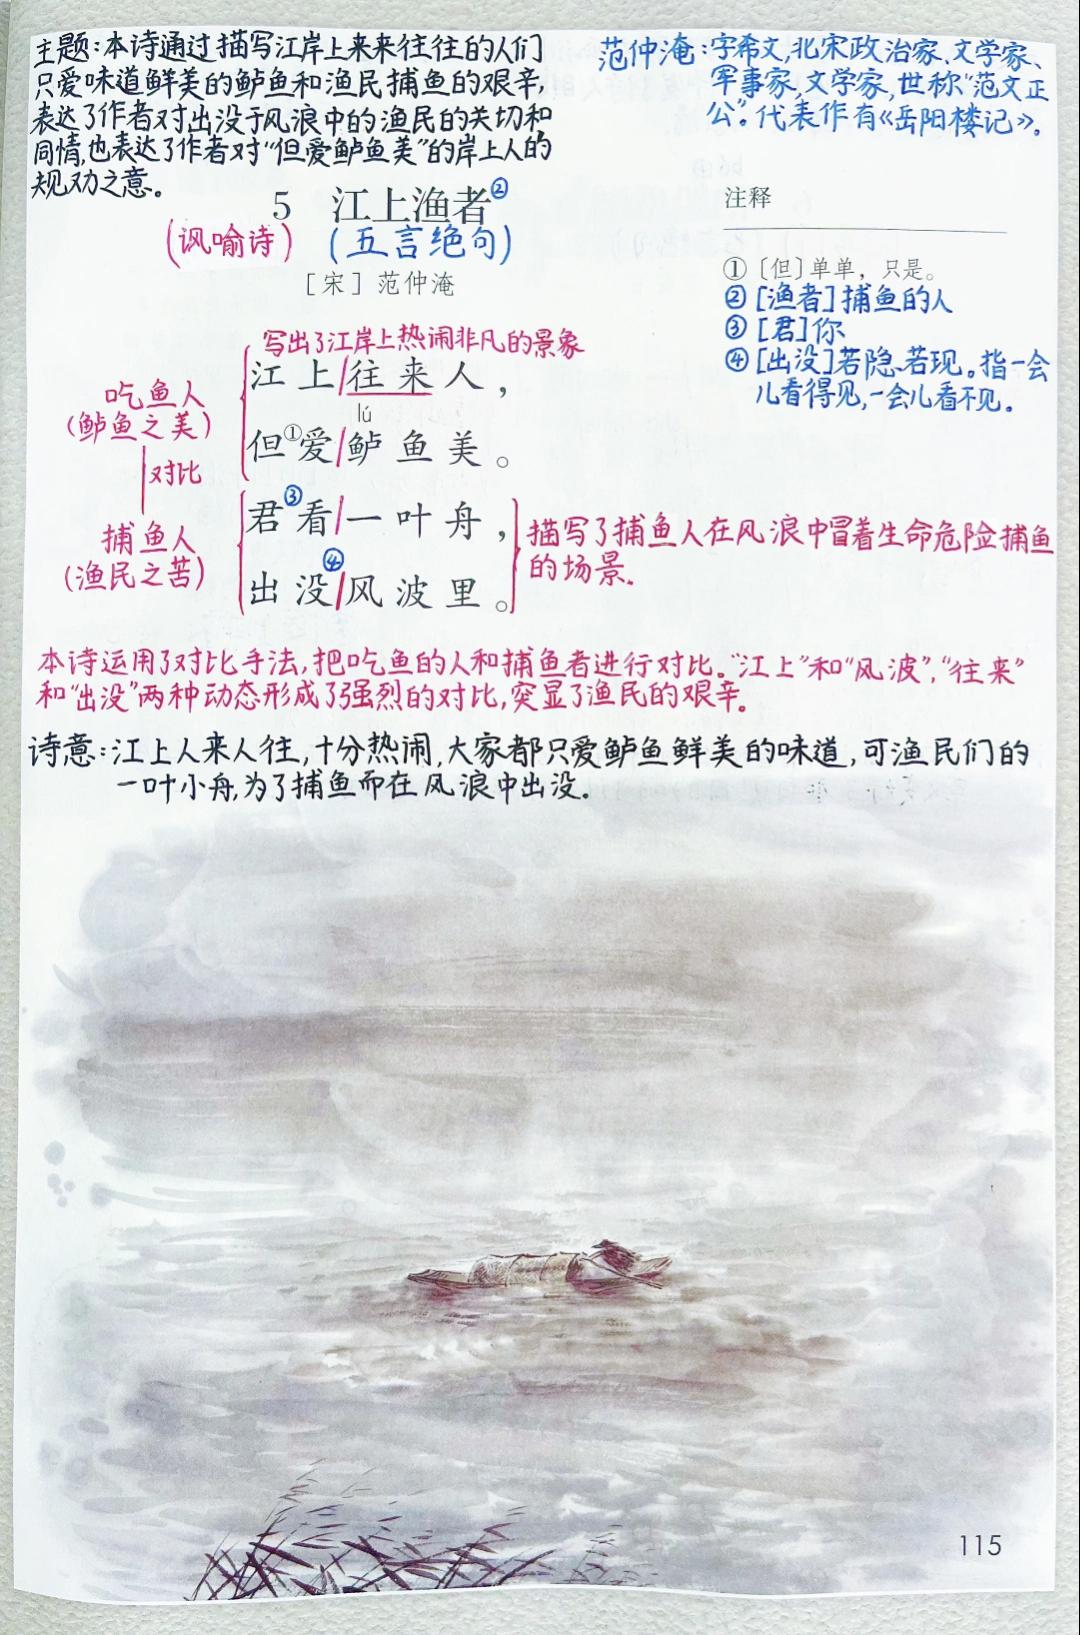 主题:本诗通过描写江岸上来来往往的人们
只爱味道鲜美的鲈鱼和渔民捕鱼的艰辛,
表达了作者对出没于风浪中的渔民的关切和
同情,也表达了作者对“但爱鲈鱼美”的岸上人的
规劝之意。
范仲淹:字希文,北宋政治家、文学家、
军事家,文学家,世称“范文正
公”。代表作有《岳阳楼记》。
5 江上渔者②
(讽喻诗) (五言绝句)
[宋] 范仲淹
注释
①〔但〕单单,只是。
②[渔者]捕鱼的人
③[君]你
④[出没]若隐若现。指一会
儿看得见,一会儿看不见。
写出了江岸上热闹非凡的景象
江上/往来人,
lú
但①爱/鲈鱼美。
君③看/一叶舟,
出没④/风波里。
吃鱼人
(鲈鱼之美)
对比
捕鱼人
(渔民之苦)
描写了捕鱼人在风浪中冒着生命危险捕鱼
的场景.
本诗运用了对比手法,把吃鱼的人和捕鱼者进行对比。“江上”和“风波”,“往来”
和“出没”两种动态形成了强烈的对比,突显了渔民的艰辛。
诗意:江上人来人往,十分热闹,大家都只爱鲈鱼鲜美的味道,可渔民们的
一叶小舟,为了捕鱼而在风浪中出没.
115